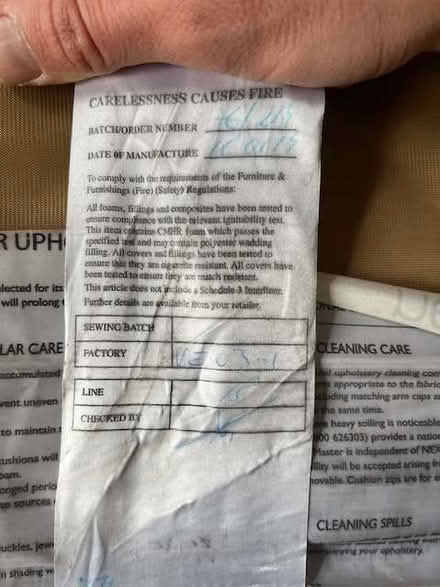 CARELESSNESS CAUSES FIRE
BATCH/ORDER NUMBER
DATE OF MANUFACTURE
To comply with the requirements of the Furniture &
Furnishings (Fire) (Safety) Regulations:
All foams, fillings and composites have been tested to
ensure compliance with the relevant ignitability test.
This item contains CMHR foam which passes the
specified test and may contain polyester wadding
filling. All covers and fillings have been tested to
ensure that they are cigarette resistant. All covers have
been tested to ensure they are match resistant.
This article does not include a Schedule 3 Interliner.
Further details are available from your retailer.
SEWING BATCH
FACTORY
LINE
CHECKED BY
R UPH
elected for its
will prolong
LAR CARE
accumulated
vent uneven
to maintain
cushions will
oam.
onged perio
sources
uckles, jew
shading
CLEANING CARE
upholstery cleaning
appropriate to the fabric
including matching arm caps
the same time.
heavy soiling is noticeable
00 626303) provides a natio
Master is independent of NEX
ility will be accepted arising
ovable. Cushion zips are for
CLEANING SPILLS
your upholstery.